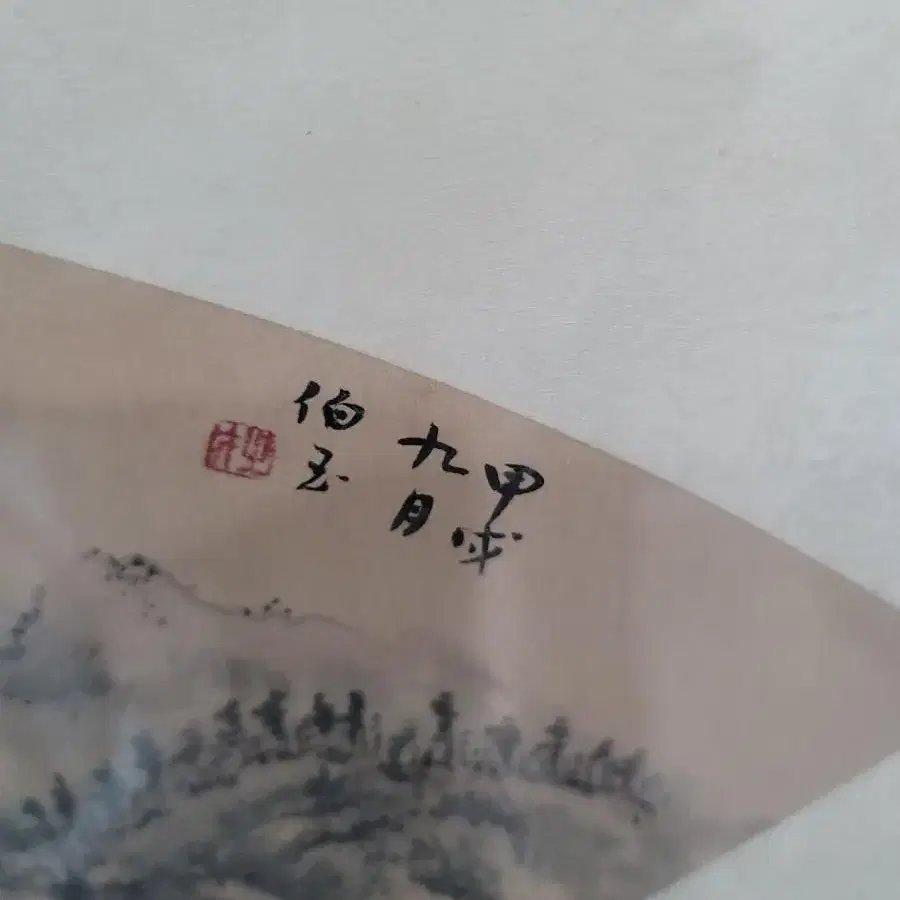 甲戌
九月
伯玉